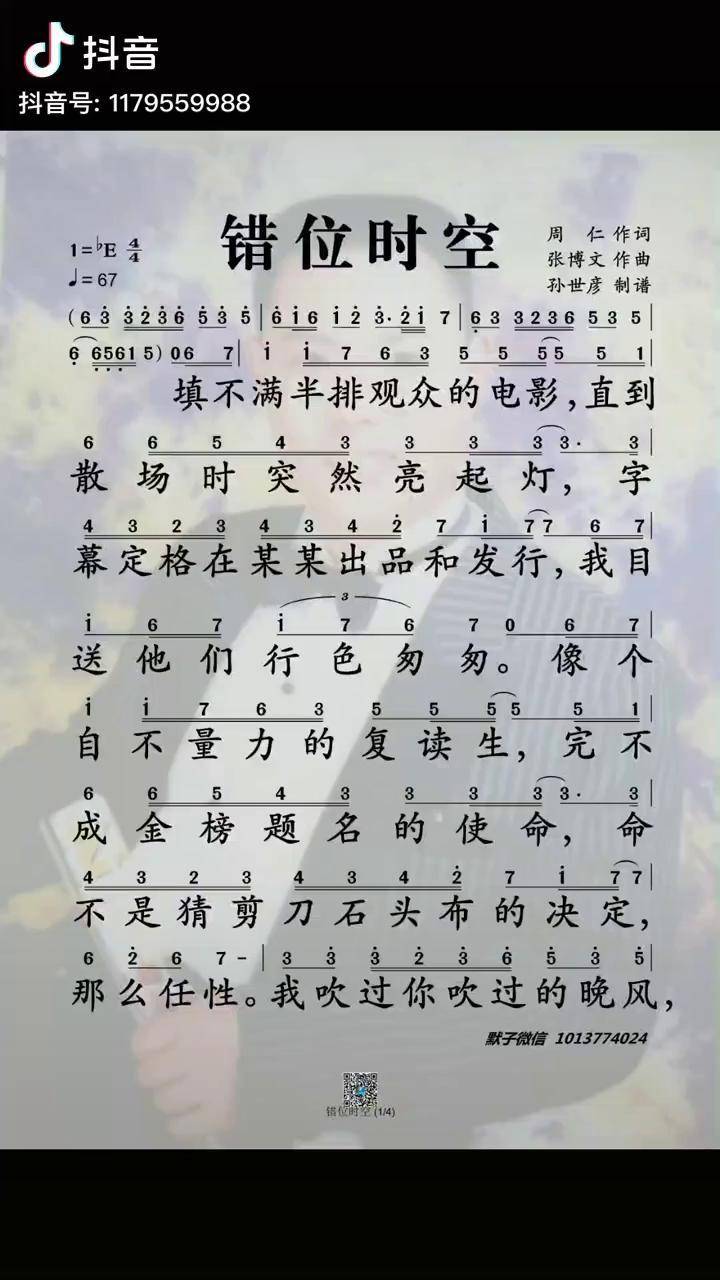 抖音
抖音号: 1179559988
错位时空
1=♭E 4/4
♩=67
周 仁 作词
张博文 作曲
孙世彦 制谱
(6 3̇ 3̇2̇3̇6 5̇3̇ 5̇|6̇ i̇6 i̇2̇ 3̇·2̇i̇ 7|6̣3 3236 53 5|
6̣ 6̣5̣6̣1 5)06 7|i̇ i̇ 7 6 3 5 5 5 5 5 1|
填不满半排观众的电影,直到
6 6 5 4 3 3 3 3 3· 3|
散场时突然亮起灯,字
4 3 2 3 4 3 4 2̇ 7 i̇ 7 7 6 7|
幕定格在某某出品和发行,我目
3
i̇ 6 7 i̇ 7 6 7 0 6 7|
送他们行色匆匆。像个
i̇ i̇ 7 6 3 5 5 5 5 5 1|
自不量力的复读生,完不
6 6 5 4 3 3 3 3 3· 3|
成金榜题名的使命,命
4 3 2 3 4 3 4 2̇ 7 i̇ 7 7|
不是猜剪刀石头布的决定,
6 2̇ 6 7 -|3 3̇ 3̇ 2̇ 3̇ 6̇ 5̇ 3̇ 5̇|
那么任性。我吹过你吹过的晚风,
默子微信 1013774024
错位时空 (1/4)